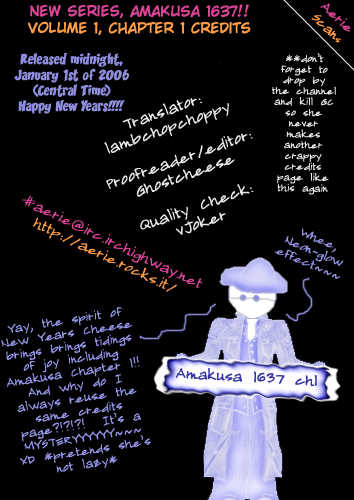 NEW SERIES, AMAKUSA 1637!!
VOLUME 1, CHAPTER 1 CREDITS
Aerie
Scans
Released midnight,
January 1st of 2006
(Central Time)
Happy New Years!!!!
**don't
forget to
drop by
the channel
and kill GC
so she
never
makes
another
crappy
credits
page like
this again
Translator:
lambchopchoppy
Proofreader/editor:
Ghostcheese
Quality check:
vJoker
#aerie@irc.irchighway.net
http://aerie.rocks.it/
Whee,
Neon-glow
effect~~~
Yay, the spirit of
New Years cheese
brings brings tidings
of joy including
Amakusa chapter 1!!
And why do I
always reuse the
same credits
page?!?!?! It's a
MYSTERYYYYYY~~~
XD *pretends she's
not lazy*
Amakusa 1637 ch1